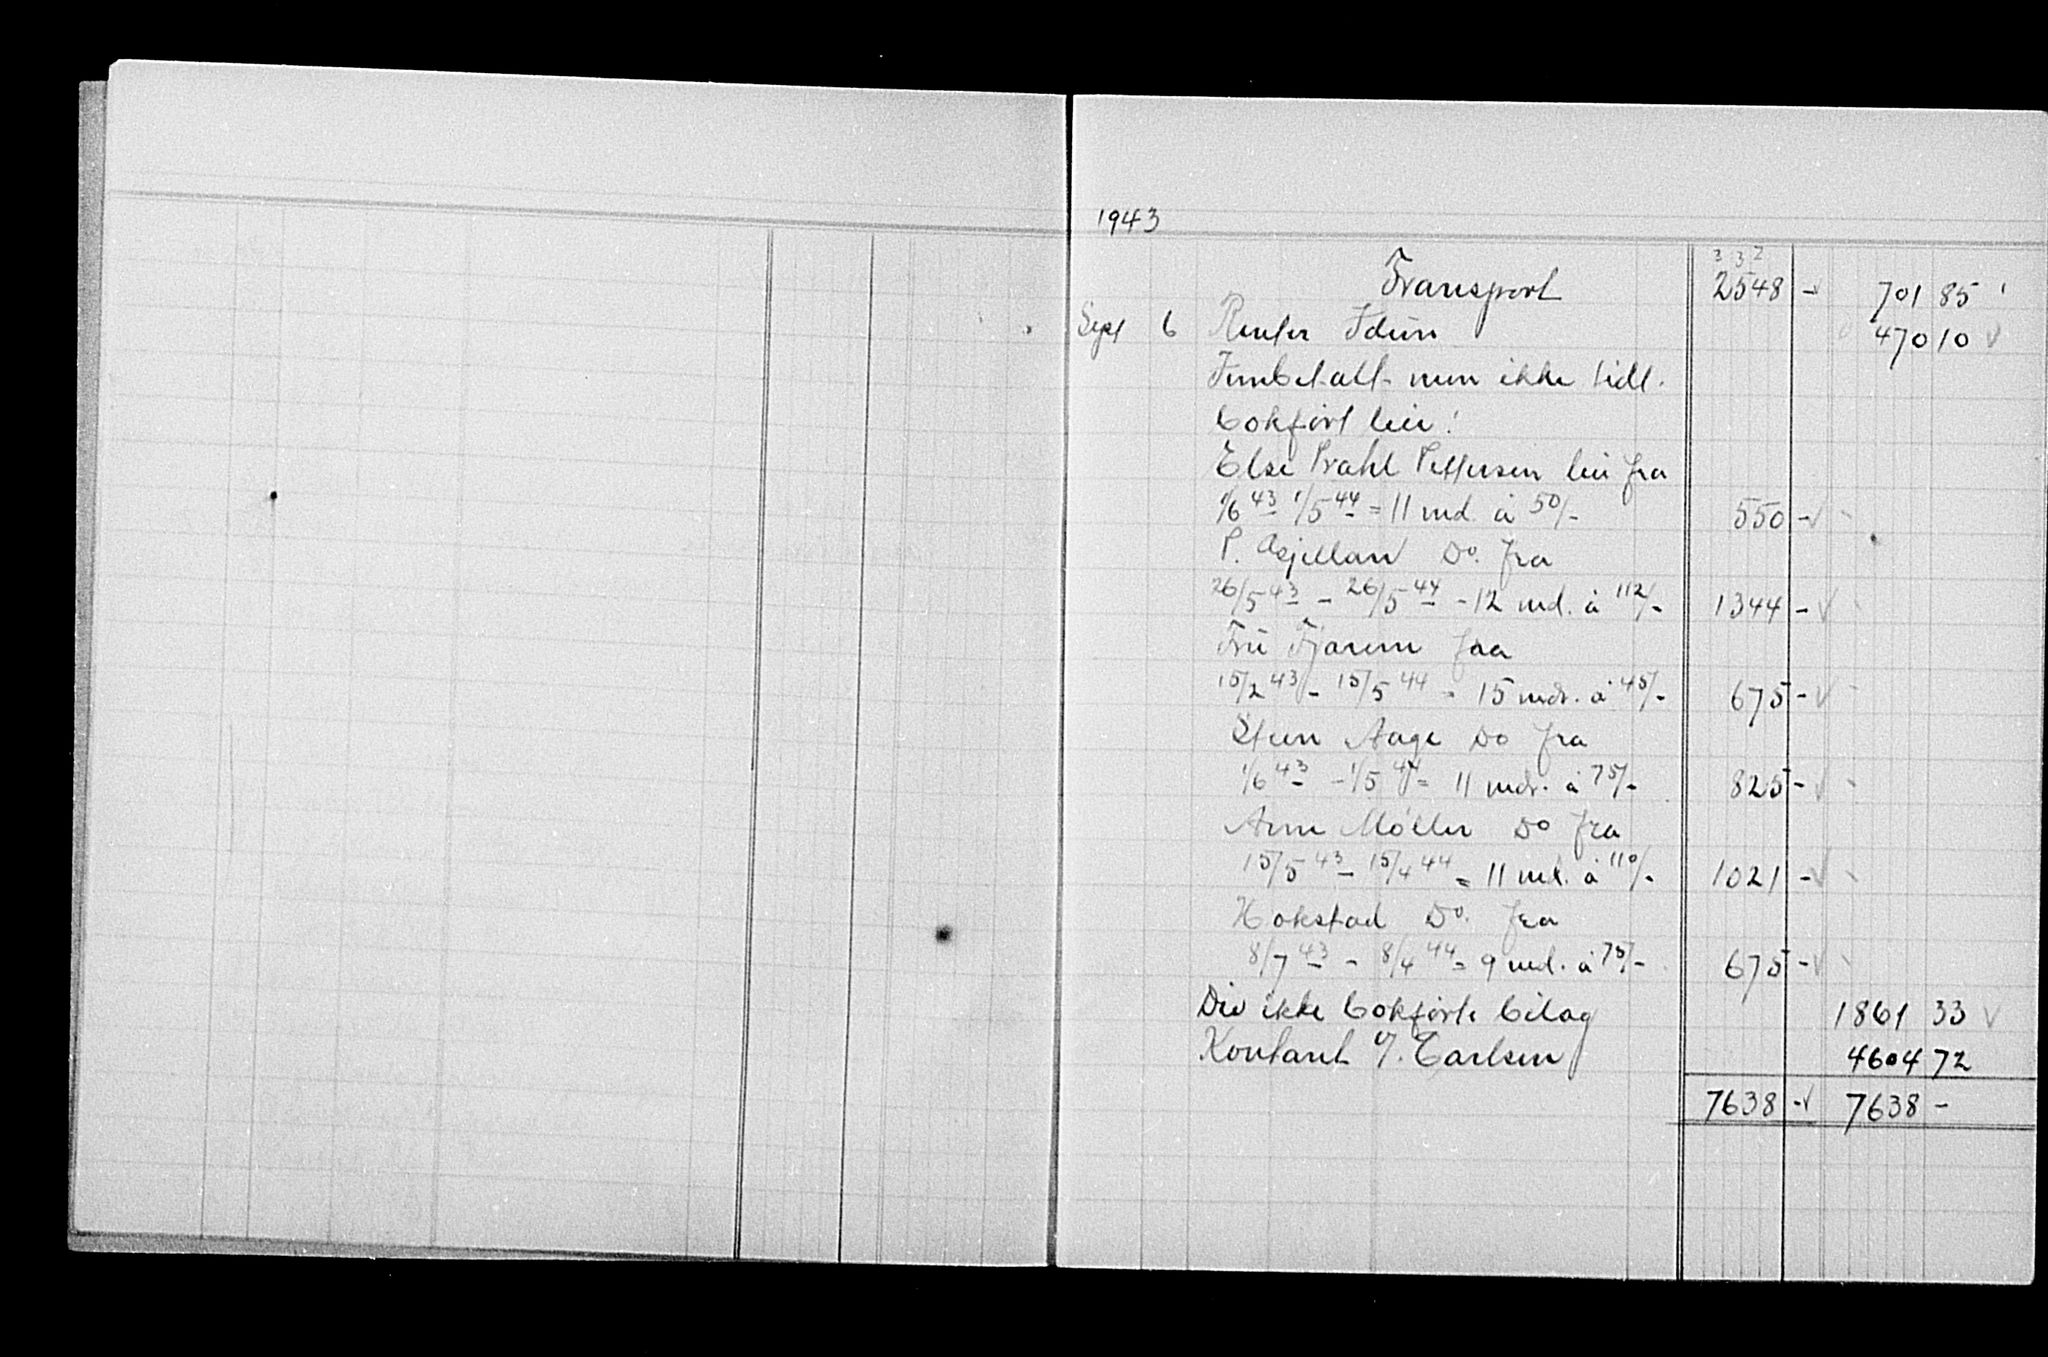 1943
3 3 2
Transport 2548 - 701 85
Sept 6 Renter Idun 470 10
Innbetalt men ikke tidl.
bokført leie!
Else Prahl Pettersen leie fra
1/6 43 1/5 44 = 11 md. à 50/- 550 -
P. Do. fra
26/5 43 - 26/5 44 - 12 md. à 112/- 1344 -
Fru fra
15/2 43 - 15/5 44 - 15 mdr. à 45/- 675 -
Steen Aage Do fra
1/6 43 - 1/5 44 = 11 mdr. à 75/- 825 -
Arne Møller Do fra
15/5 43 - 15/4 44 = 11 md. à 110/- 1021 -
Hokstad Do. fra
8/7 43 - 8/4 44 = 9 md. à 75/- 675 -
Div ikke bokførte bilag 1861 33
Kontant Carlsen 4604 72
7638 - 7638 -